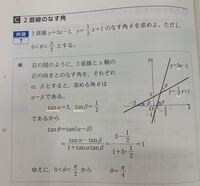 C 2直線のなす角
例題 7
2直線 y=3x-1, y=1/2 x+1 のなす角θを求めよ。ただし，
0<θ<π/2 とする。
解 右の図のように，2直線とx軸の
正の向きとのなす角を，それぞれ
α，βとすると，求める角θは
α-βである。
tanα=3, tanβ=1/2
であるから
tanθ=tan(α-β)
=(tanα-tanβ)/(1+tanαtanβ)=(3-1/2)/(1+3・1/2)=1
ゆえに，0<θ<π/2 から θ=π/4
y y=3x-1
y=1/2 x+1
θ
β
α
O
x